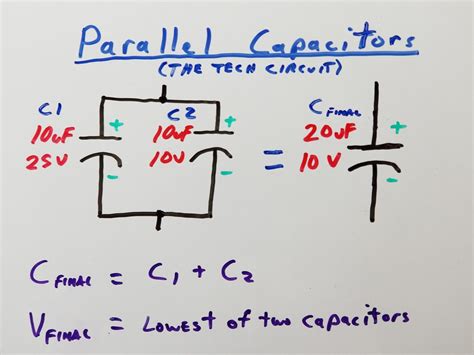 Parallel Capacitors
(THE TECH CIRCUIT)
C1 C2 C FINAL
10uF + 10uF + 20uF +
25V - 10V - = 10V -
C FINAL = C1 + C2
V FINAL = LOWEST OF TWO CAPACITORS